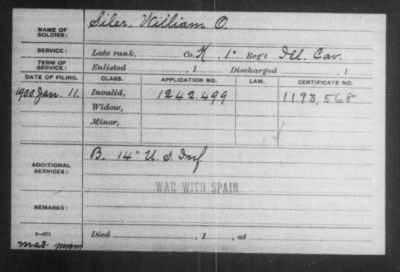 NAME OF SOLDIER: Siler, William O.
SERVICE: Late rank, Co. K, 1" Reg't Ill. Cav.
TERM OF SERVICE: Enlisted , 1 Discharged , 1
DATE OF FILING. CLASS. APPLICATION NO. LAW. CERTIFICATE NO.
1900 Jan. 11. Invalid, 1242,499 1193,568
Widow,
Minor,
ADDITIONAL SERVICES: B. 14" U.S. Inf
WAR WITH SPAIN
REMARKS:
Died , 1 , at